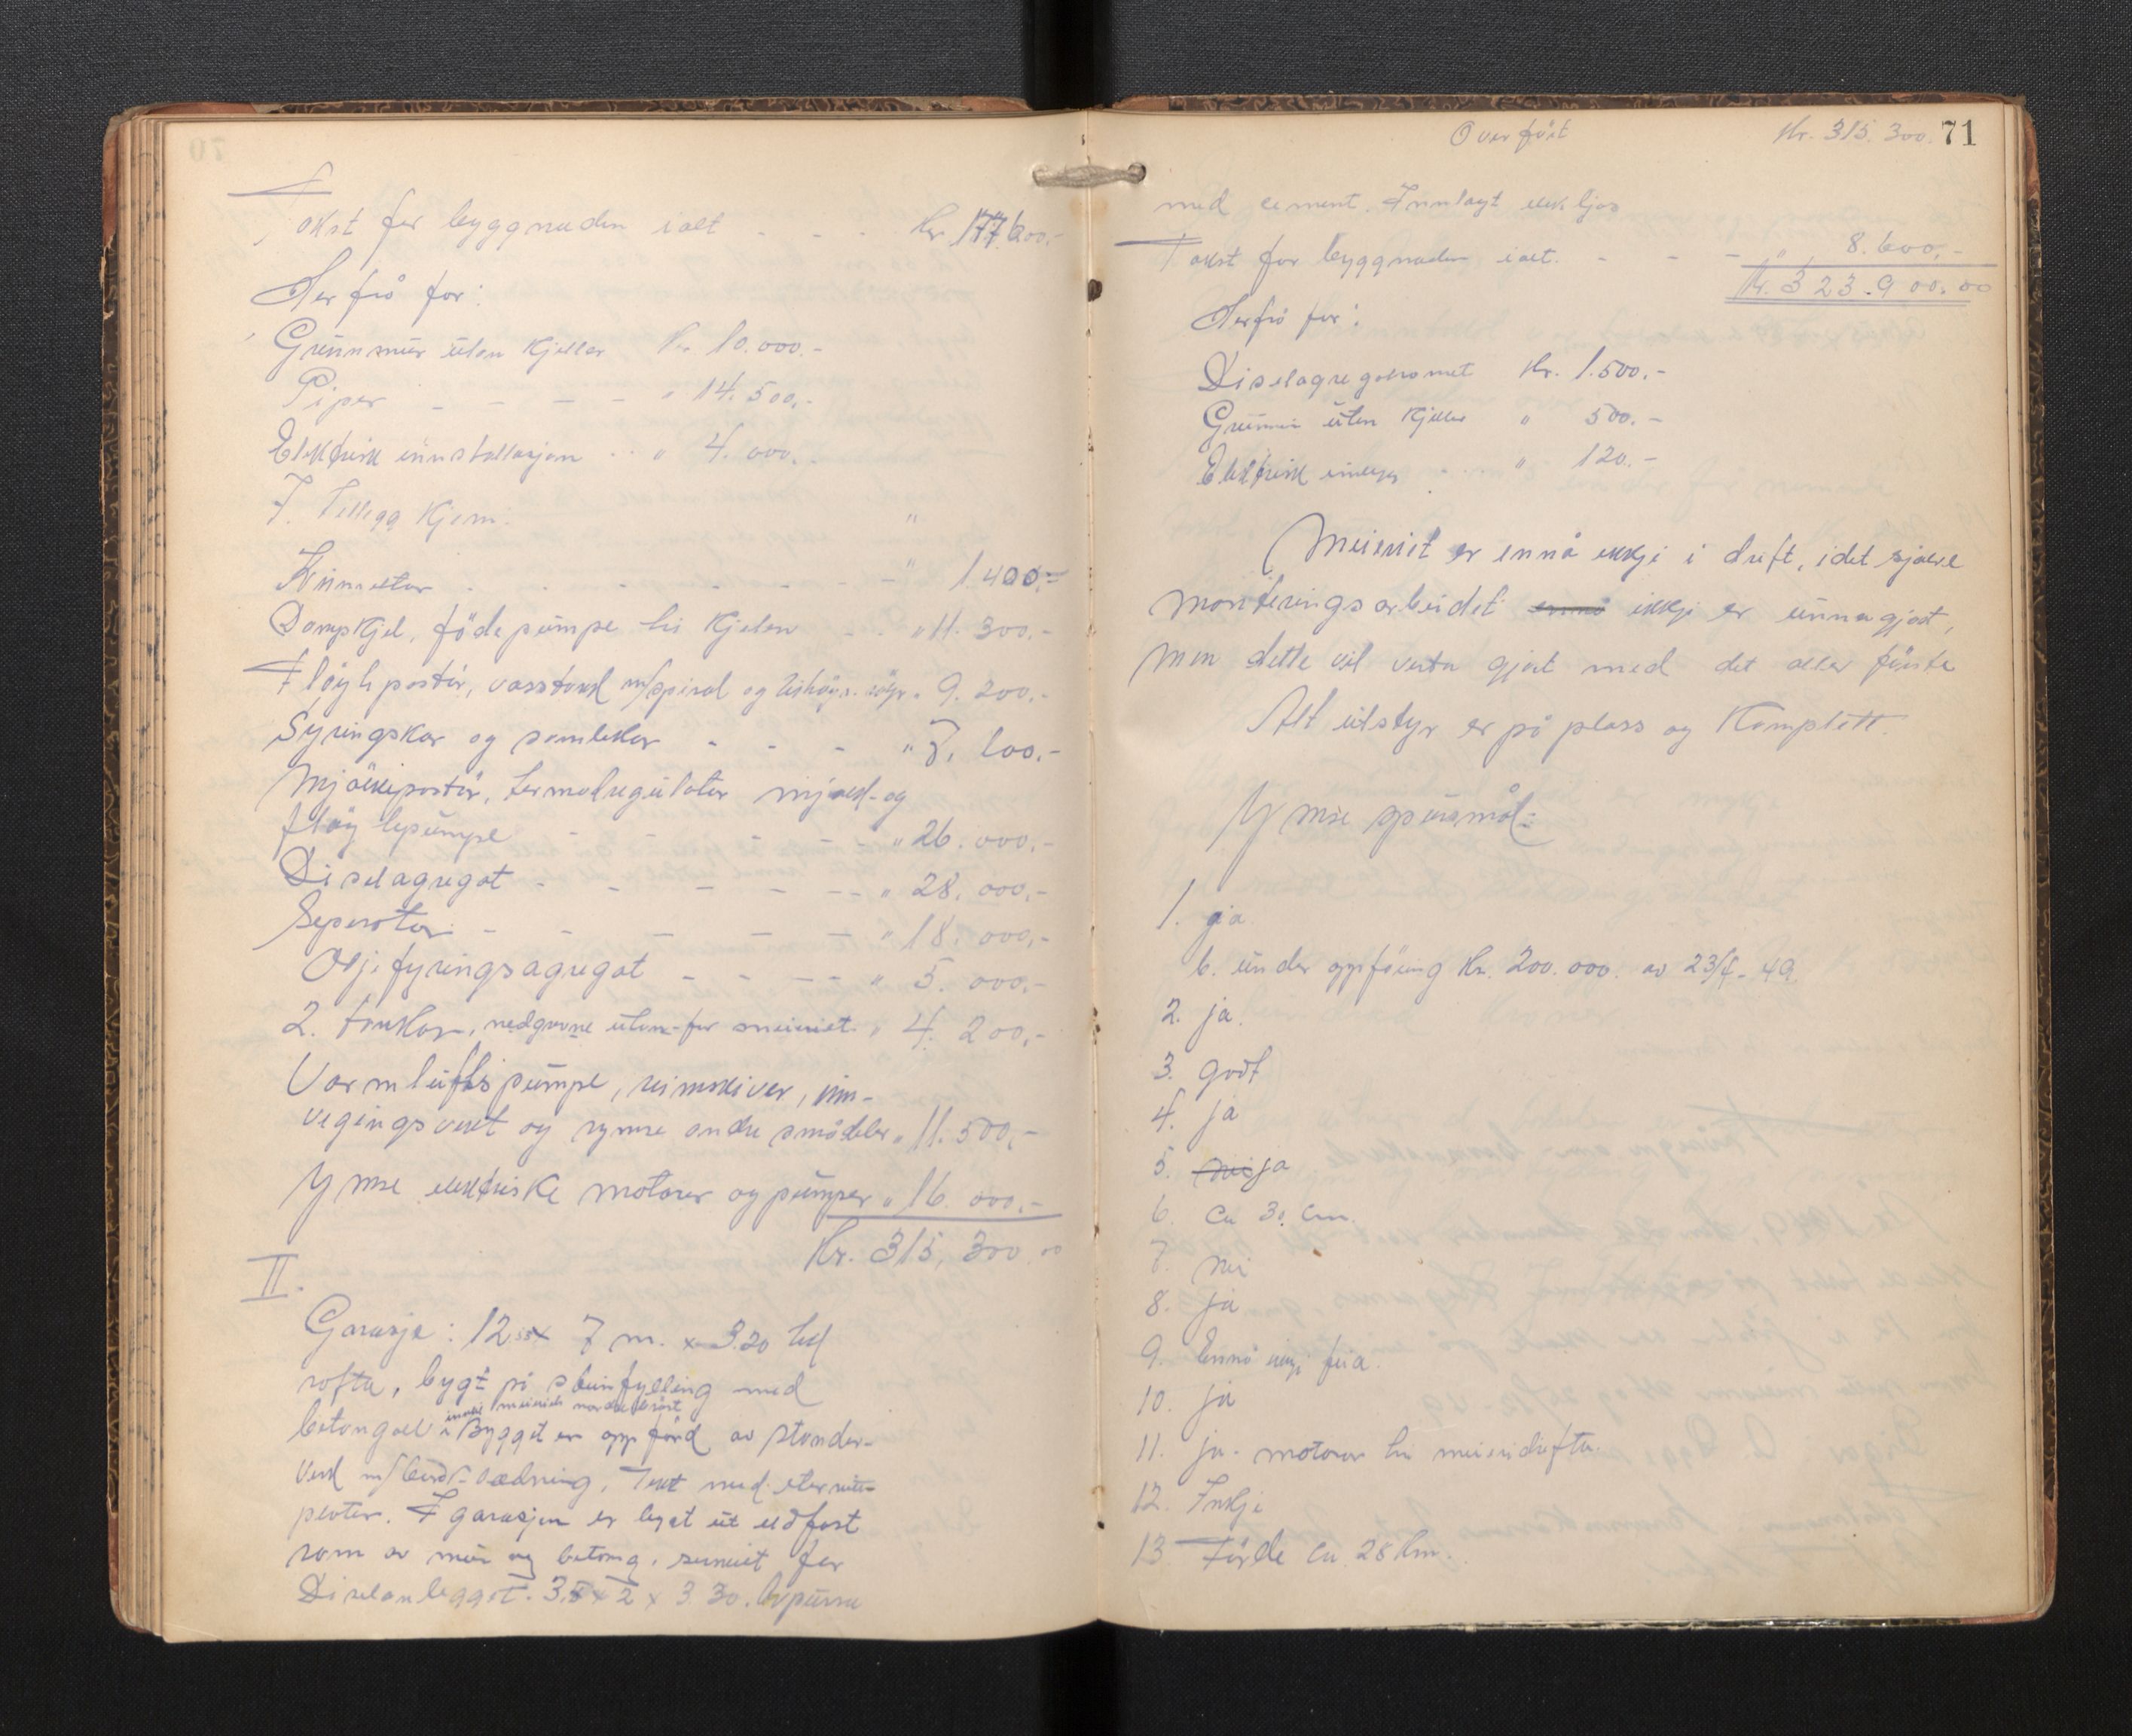 Takst for byggnaden ialt - - - Kr 177.600.-
Herfrå for:
Grunnmur uten Kjeller Kr 10.000.-
Piper - - - - " 14.500.-
Elektrisk innstallasjon - - " 4.000.-
I. Tillegg Kjem:
" 1400.-
Dampkjel, födepumpe til Kjelen - - " 11.300.-
Flöyt postör, vasstank m/spiral og " 9.200.-
Syringskar og - - - "
Mjölkepostör, termoregulator mjölk- og
flöytepumpe - - - - - " 26.000.-
Diselagregat - - - - - " 28.000.-
Seperator - - - - - " 18.000.-
Oljefyringsagregat - - - - " 5.000.-
2. tankar, nedgravne utan-for meieriet " 4.200.-
Varmluftspumpe, reimskiver, inn-
vegingsvekt og ymse andre smådeler " 11.500.-
Ymse elektriske motorer og pumper " 16.000.-
Kr. 315.300.00
II.
Garasje: 12 x 7 m. x 3.20 til
rofte, bygt på steinfylling med
betongdell i Bygget er oppförd av stender-
verk m/bord-kledning. Tekt med eternitt-
plater. I garasjen er bygt ut eldfast
rom av mur og betong, rommet for
Diselanlegget. 3.5 x 2 x 3.30.
Overfört Kr. 315.300. 71
med cement. Innlagt elek. ljos
Takst for byggnaden ialt. - - - " 8.600,-
Kr. 323.900.00
Herfrå for:
Diselagregatromet Kr. 1.500.-
uten Kjeller " 500.-
Elektrisk " 120.-
Meieriet er ennå ikkje i drift, idet sjølve
monteringsarbeidet ennå ikkje er unnagjort,
men dette vil verta gjort med det aller fürste
Alt utstyr er på plass og Komplett.
Ymse spursmål:
1. ja
b. under oppföring Kr. 200.000. av 23/4-49.
2. ja.
3. godt
4. ja
5. nei ja
6. ca 30 cm.
7. nei
8. ja
9. Ennå ikkje feia.
10. ja
11. ja - motorar til meieridrifta.
12. Inkje
13 Förde ca. 28 km.